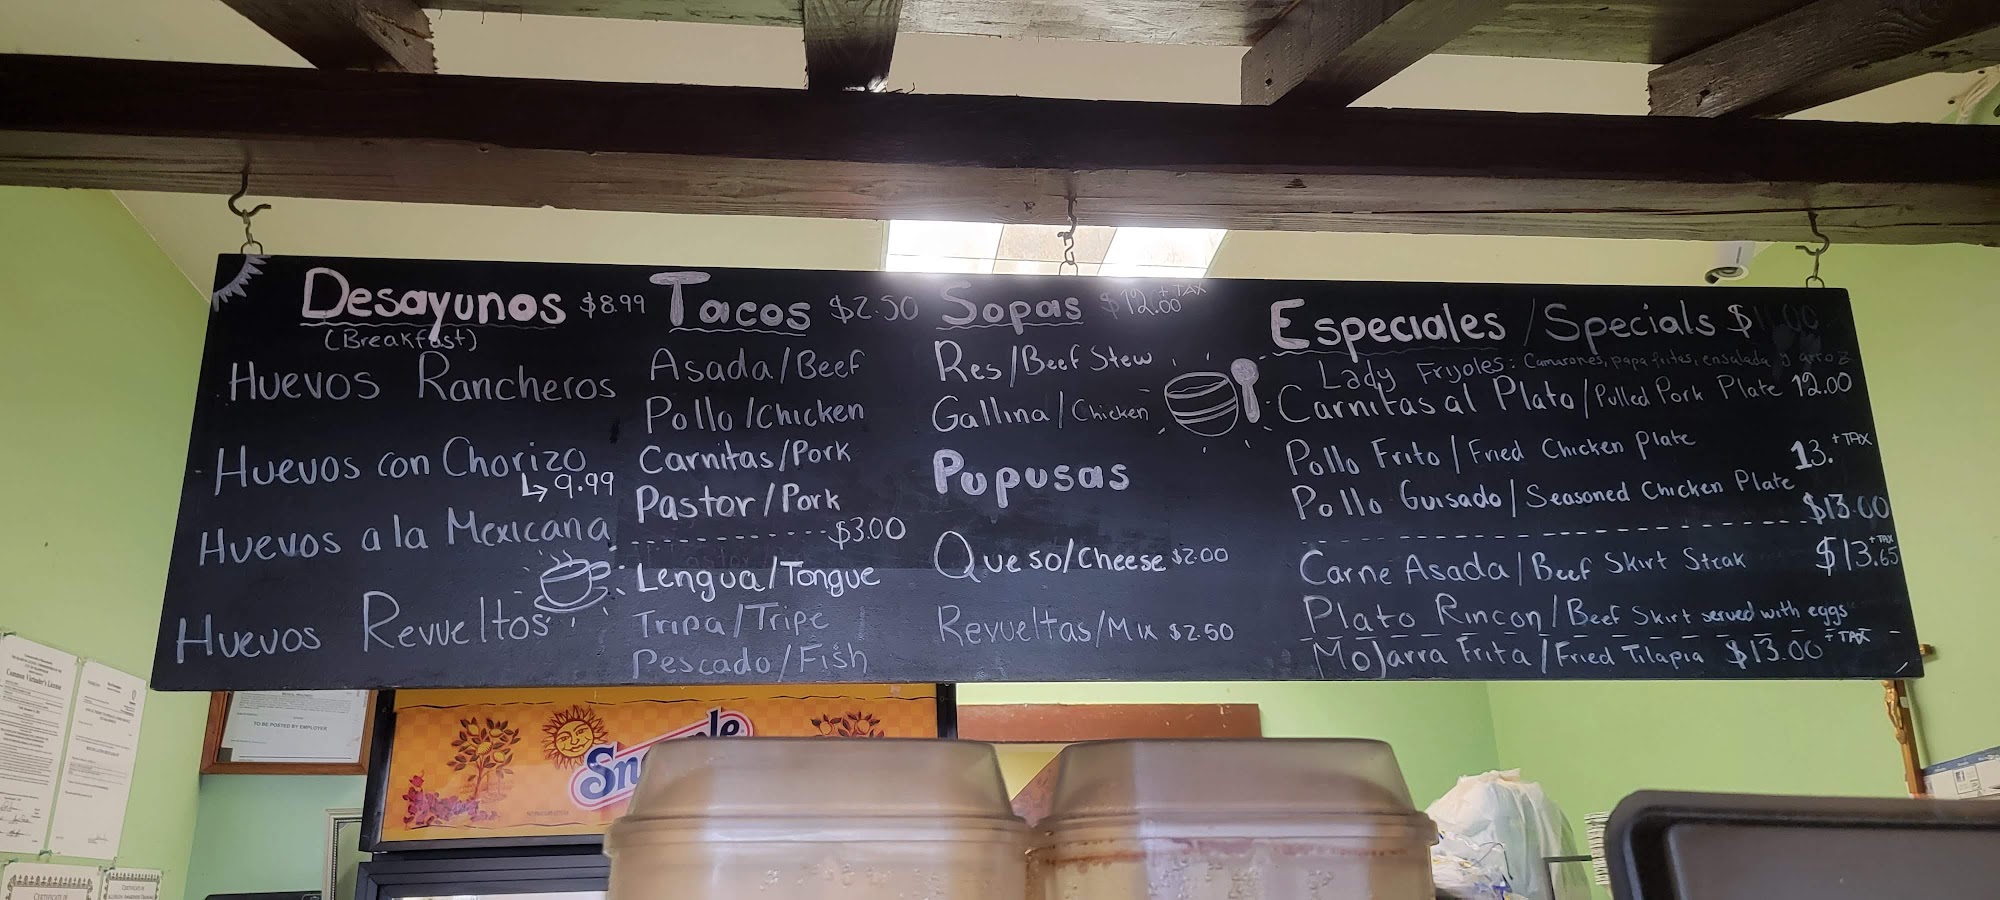 Desayunos $8.99
(Breakfast)
Huevos Rancheros
Huevos con Chorizo
↳ 9.99
Huevos a la Mexicana
Huevos Revueltos
Tacos $2.50
Asada/Beef
Pollo/Chicken
Carnitas/Pork
Pastor/Pork
$3.00
Lengua/Tongue
Tripa/Tripe
Pescado/Fish
Sopas $12.00 + TAX
Res/Beef Stew
Gallina/Chicken
Pupusas
Queso/Cheese $2.00
Revueltas/Mix $2.50
Especiales/Specials $11.00
Lady Fryoles: Camarones, papa fritas, ensalada y arroz
Carnitas al Plato/Pulled Pork Plate 12.00
Pollo Frito/Fried Chicken plate 13. + TAX
Pollo Guisado/Seasoned Chicken Plate
$13.00
Carne Asada/Beef Skirt Streak $13.65 + TAX
Plato Rincon/Beef Skirt served with eggs
Mojarra Frita/Fried Tilapia $13.00 + TAX
TO BE POSTED BY EMPLOYER
Common Victualer's License